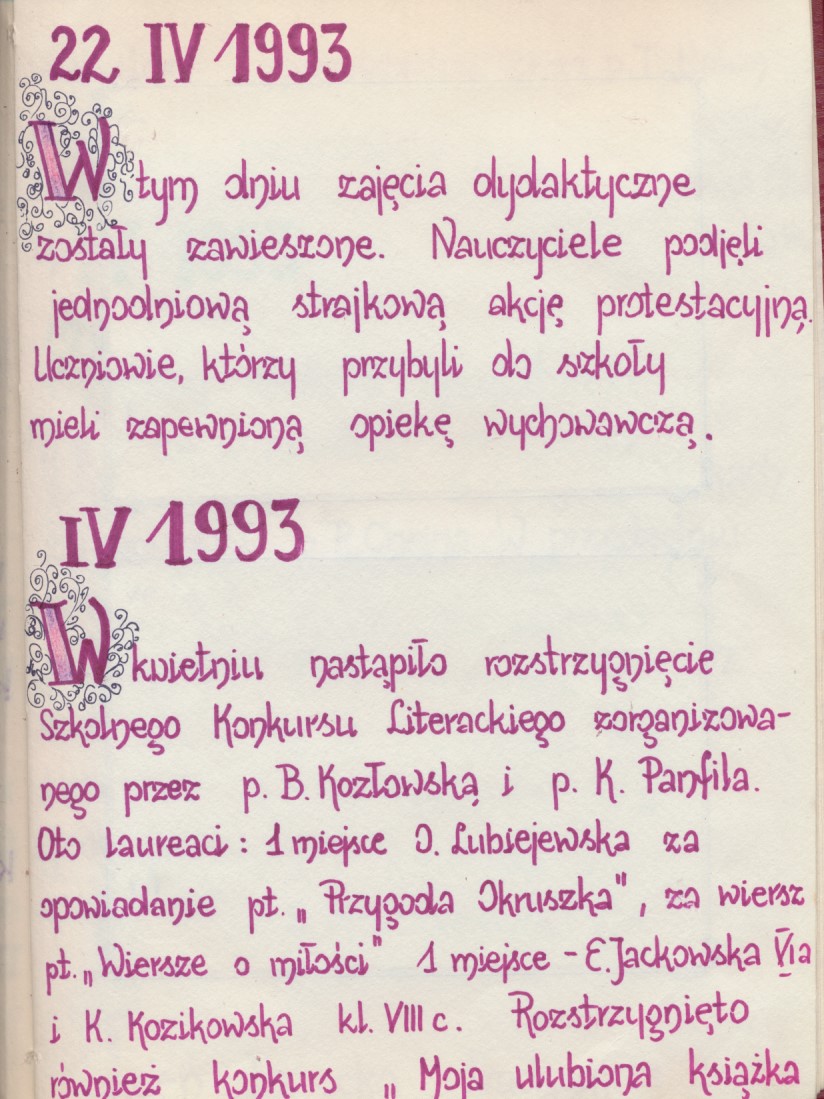 22 IV 1993
W tym dniu zajęcia dydaktyczne
zostały zawieszone. Nauczyciele podjęli
jednodniową strajkową akcję protestacyjną.
Uczniowie, którzy przybyli do szkoły
mieli zapewnioną opiekę wychowawczą.
IV 1993
W kwietniu nastąpiło rozstrzygnięcie
Szkolnego Konkursu Literackiego zorganizowa-
nego przez p. B. Kozłowską i p. K. Panfila.
Oto laureaci: 1 miejsce O. Lubiejewska za
opowiadanie pt. „Przygoda Okruszka", za wiersz
pt. „Wiersze o miłości" 1 miejsce - E. Jackowska VIa
i K. Kozikowska kl. VIII c. Rozstrzygnięto
również konkurs „Moja ulubiona książka